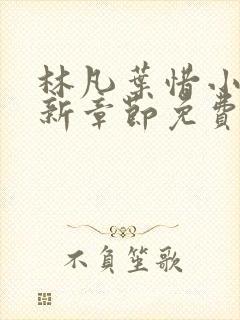 林凡葉惜小
新章節免費
不負笙歌